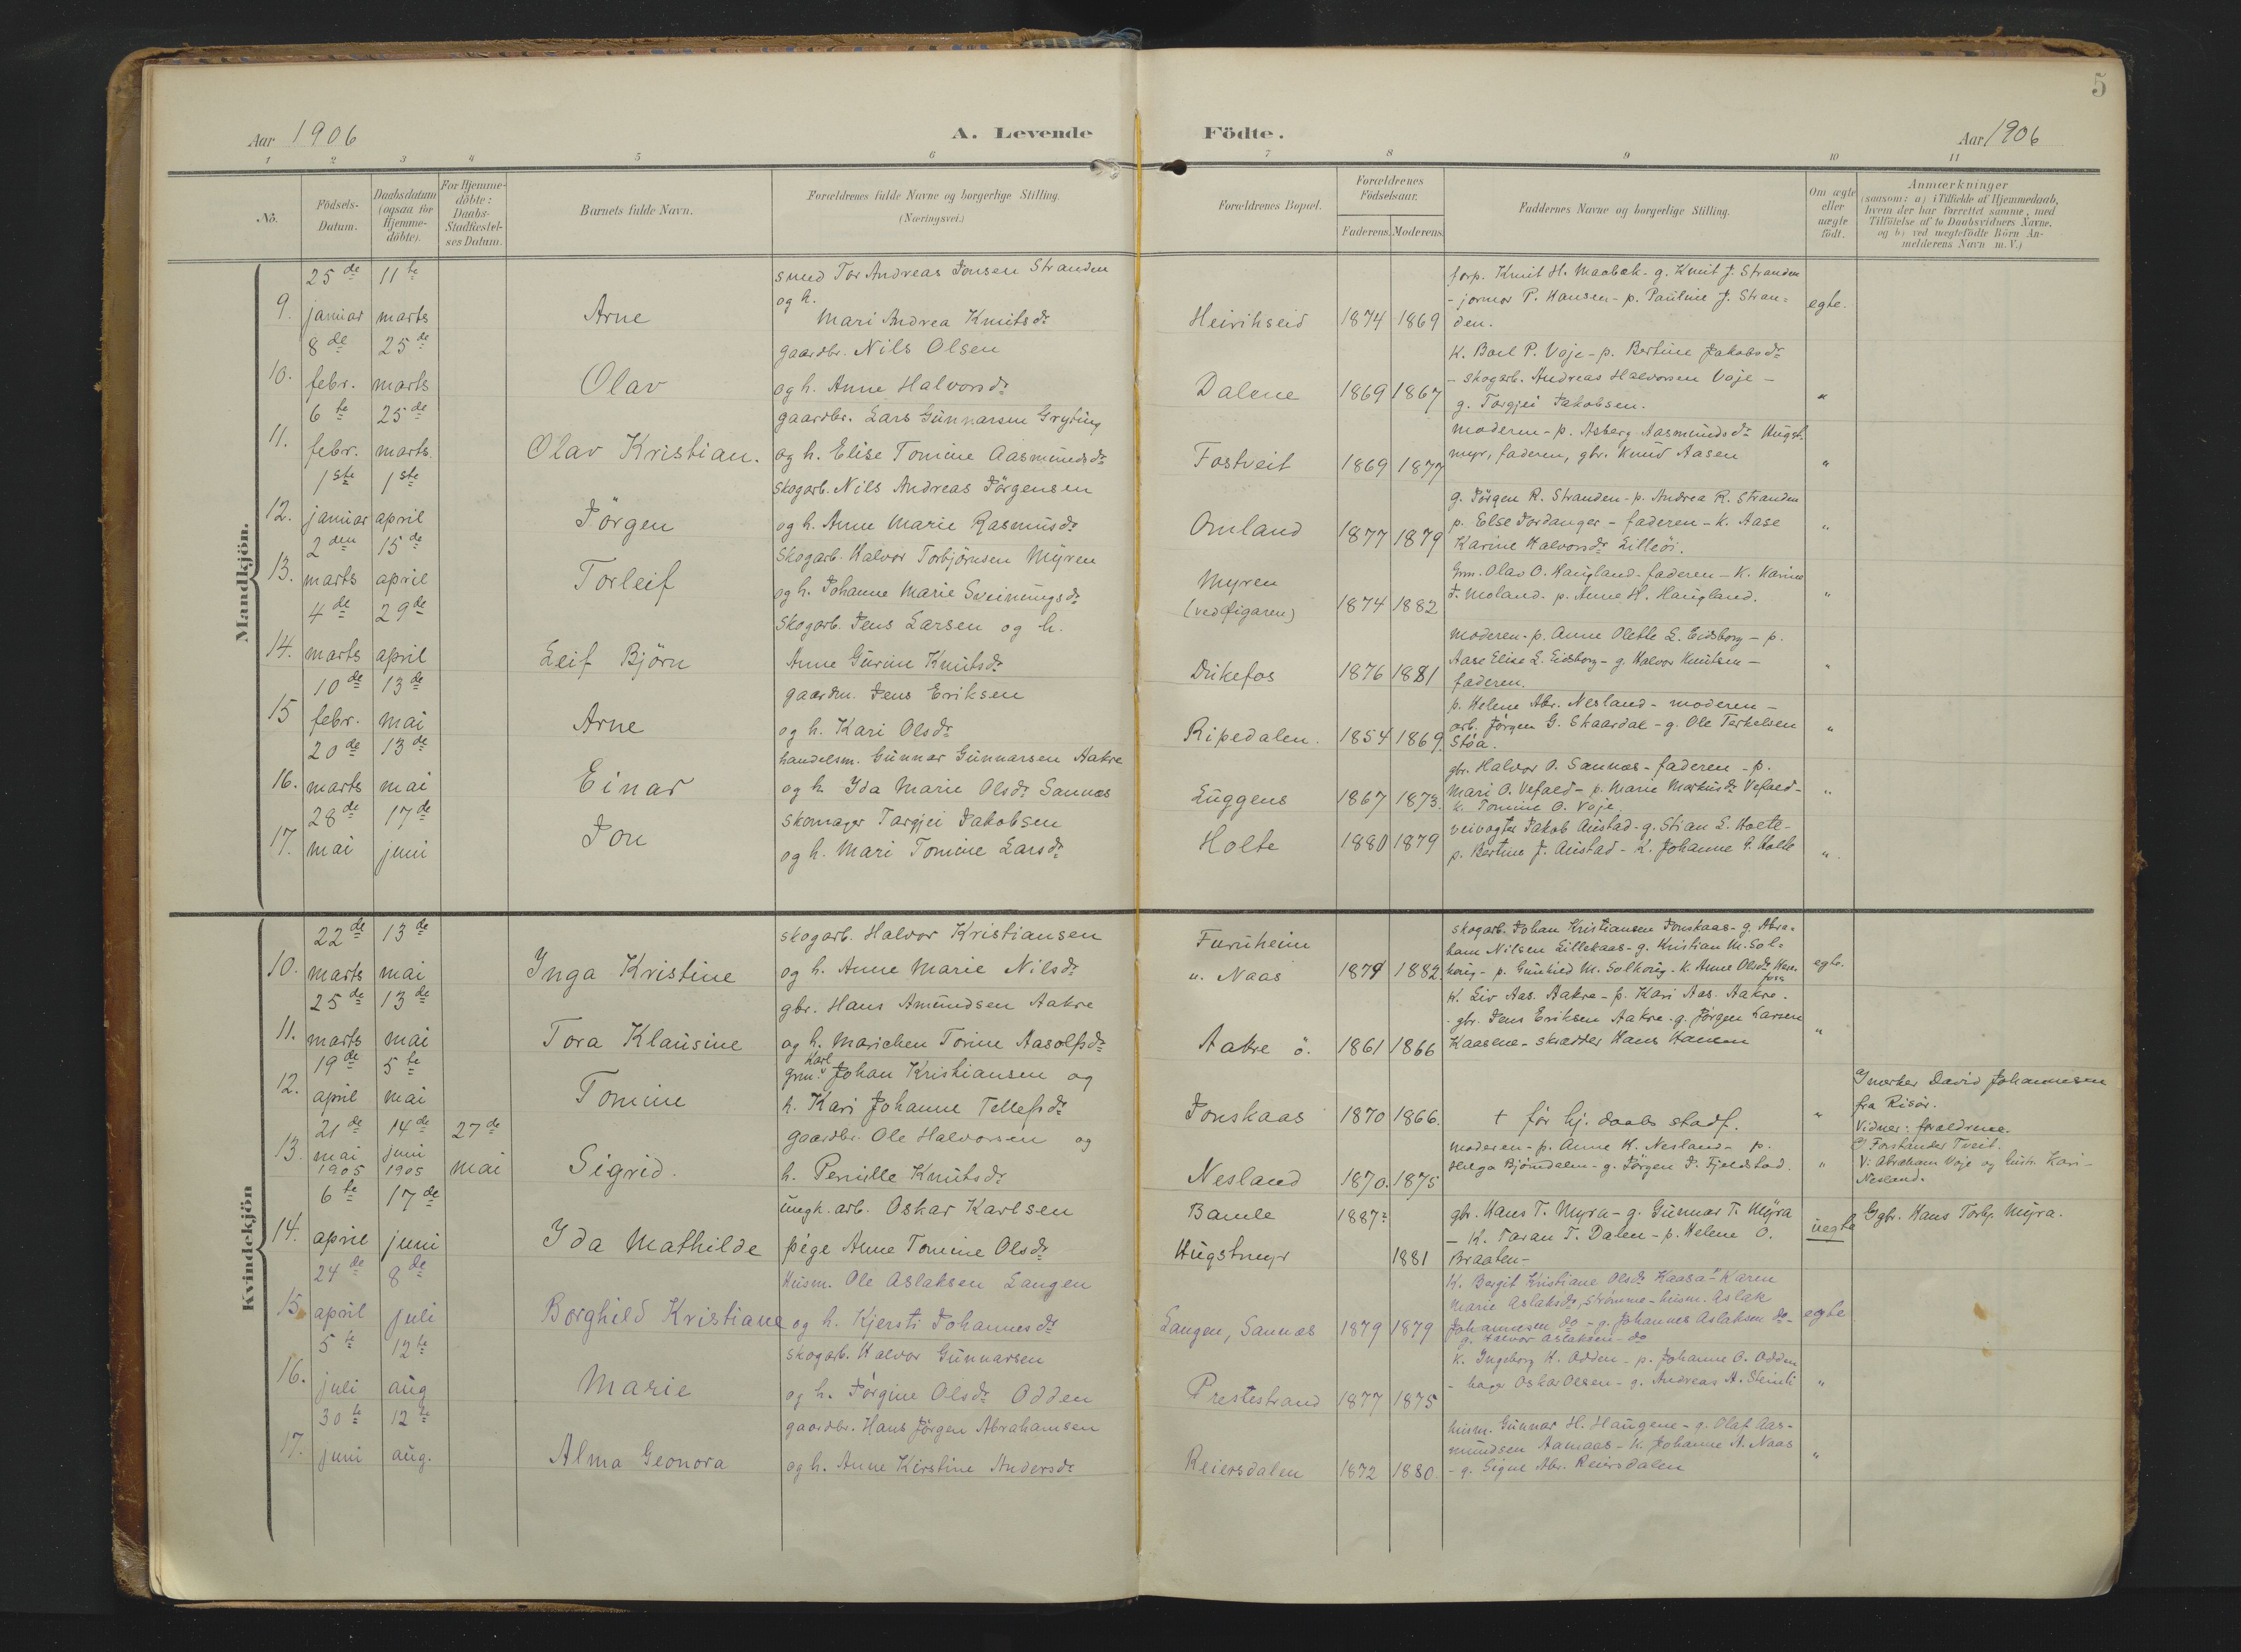 5
Aar 1906
A. Levende Födte.
Aar 1906
1 2 3 4 5 6 7 8 9 10 11
No.
Födsels-Datum.
Daabsdatum (ogsaa for Hjemme-döbte).
For Hjemme-döbte: Daabs-Stadfæstel-ses Datum.
Barnets fulde Navn.
Forældrenes fulde Navne og borgerlige Stilling.
(Næringsvei.)
Forældrenes Bopæl.
Forældrenes Födselsaar.
Faderens. Moderens.
Faddernes Navne og borgerlige Stilling.
Om ægte eller uægte födt.
Anmærkninger
(saasom: a) i Tilfælde af Hjemmedaab,
hvem der har forrettet samme, med
Tilföielse af to Daabsvidners Navne.
og b) ved uægtefödte Börn An-
melderens Navn m. V.)
Mandkjön.
9. 25de januar 11te marts Arne
smed Tor Andreas Jonsen Stranden
og h.
Mari Andrea Knutsdr
Heirikseid 1874 1869
forp. Knut H. Maabæk - g. Knut J. Stranden
- jormor P. Hansen - p. Pauline J. Stran-
den.
egte.
10. 8de febr. 25de marts Olav
gaardbr. Nils Olsen
og h. Anne Halvorsdr
Dalene 1869 1867
K. Boel P. Voje - p. Bertine Jakobsdr
- skogarb. Andreas Halvorsen Voje -
g. Torgjei Jakobsen.
"
11. 6te febr. 25de marts. Olav Kristian.
gaardbr. Lars Gunnarsen Gryting
og h. Elise Tomine Aasmundsdr
Fostveit 1869 1877
moderen - p. Asberg Aasmundsdr Hugst-
myr, faderen, gbr. Knud Aasen
"
12. 1ste januar 1ste april Jörgen
Skogarb. Nils Andreas Jörgensen
og h. Anne Marie Rasmusdr
Omland 1877 1879
g. Jörgen R. Stranden - p. Andrea R. Stranden
p. Else Jordanger - faderen - K. Aase
Karine Halvorsdr Lilleöi.
"
13. 2den marts 15de april Torleif
Skogarb. Halvor Torbjörnsen Myren
og h. Johanne Marie Sveinungsdr
Myren
(ved Figaren) 1874 1882
Grm. Olav O. Haugland - faderen - K. Karine
T. Moland - p. Anne H. Haugland.
"
14. 4de marts 29de april Leif Björn
Skogarb. Jens Larsen og h.
Anne Gurine Knutsdr
Dukefos 1876 1881
moderen - p. Anne Olette L. Eidsborg - p.
Aase Elise L. Eidsborg - g. Halvor Knutsen -
faderen.
"
15 10de febr. 13de mai Arne
gaardm. Jens Eriksen
og h. Kari Olsdr
Ripedalen. 1854 1869.
p. Helene Abr. Nesland - moderen -
arb. Jörgen G. Skaardal - g. Ole Terkelsen
Stöa.
"
16. 20de marts 13de mai Einar
handelsm. Gunnar Gunnarsen Aakre
og h. Ida Marie Olsdr Sannæs
Luggens 1867 1873.
gbr. Halvor O. Sannæs - faderen - p.
Mari O. Vefald - p. Marie Markusdr Vefald -
k. Tomine O. Voje
"
17. 28de mai 17de juni Jon
skomager Targjei Jakobsen
og h. Mari Tomine Larsdr
Holte 1880 1879
veivogter Jakob Austad - g. Stian L. Holte -
p. Bertine J. Austad - K. Johanne L. Holte
"
Kvindekjön
10. 22de marts 13de mai Inga Kristine
skogarb. Halvor Kristiansen
og h. Anne Marie Nilsdr
Furuheim
u. Naas 1874 1882
skogarb. Johan Kristiansen Jonskaas - g. Abra-
ham Nilsen Lillekaas - g. Kristian M. Sol-
houg - p. Gunhild M. Solhoug - K. Anne Olsdr
egte.
11. 25de marts 13de mai Tora Klausine
gbr. Hans Amundsen Aakre
og h. Marichen Torine Aasolfsdr
Aakre ö. 1861 1866
K. Liv Aas. Aakre - p. Kari Aas. Aakre.
- gbr. Jens Eriksen Aakre - g. Jörgen Larsen
Kaasene - skrædder Hans Hansen
"
12. 19de april 5te mai Tomine
grm. Karl Johan Kristiansen og
h. Kari Johanne Tellefsdr
Jonskaas 1870 1866.
+ før hj. daabs stadf.
"
Snerker David Johannesen
fra Risör.
Vidner: forældrene.
13. 21de mai 1905 14de juni 1905 27de mai Sigrid.
gaardbr. Ole Halvorsen og
h. Pernille Knutsdr
Nesland 1870. 1875
moderen - p. Anne K. Nesland - p.
Helga Bjömdalen - g. Jörgen J. Fjeldstad.
"
Forstander Tveit.
V: Abraham Voje og hustr. Kari
Nesland.
14. 6te april 17de juni Ida Mathilde
ungk. arb. Oskar Karlsen
pige Anne Tomine Olsdr
Bamle 1887
Hugstmyr 1881
gbr. Hans T. Myra - g. Gunnar T. Myra
- K. Taran T. Dalen - p. Helene O.
Braaten -
uegte
Ggbr. Hans Torbj. Myra.
15. 24de april 8de juli Borghild Kristiane
Husm. Ole Aslaksen Langen
og h. Kjersti Johannesdr
Langen, Sannæs 1879 1879
K. Bergit Kristiane Olsdr Kaasa - Karen
Marie Aslaksdr, Strömme - husm. Aslak
Johannesen do - g. Johannes Aslaksen do -
g. Halvor Aslaksen do
egte
16. 5te juli 12te aug Marie
Skogarb. Halvor Gunnarsen
og h. Jörgine Olsdr Odden
Prestestrand 1877 1875
K. Ingeborg H. Odden - p. Johanne O. Odden
- bager Oskar Olsen - g. Andreas A. Steinli
"
17. 30te juni 12te aug. Alma Geonora
gaardbr. Hans Jörgen Abrahamsen
og h. Anne Kirstine Andersdr
Reiersdalen 1872 1880
husm. Gunnar H. Haugene - g. Olaf Aas-
mundsen Aamaas - K. Johanne A. Naas
- g. Signe Abr. Reiersdalen
"